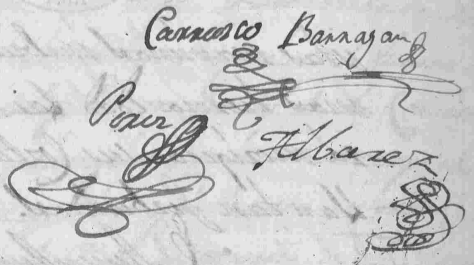 Carrasco Barragan
Perez
Albarez